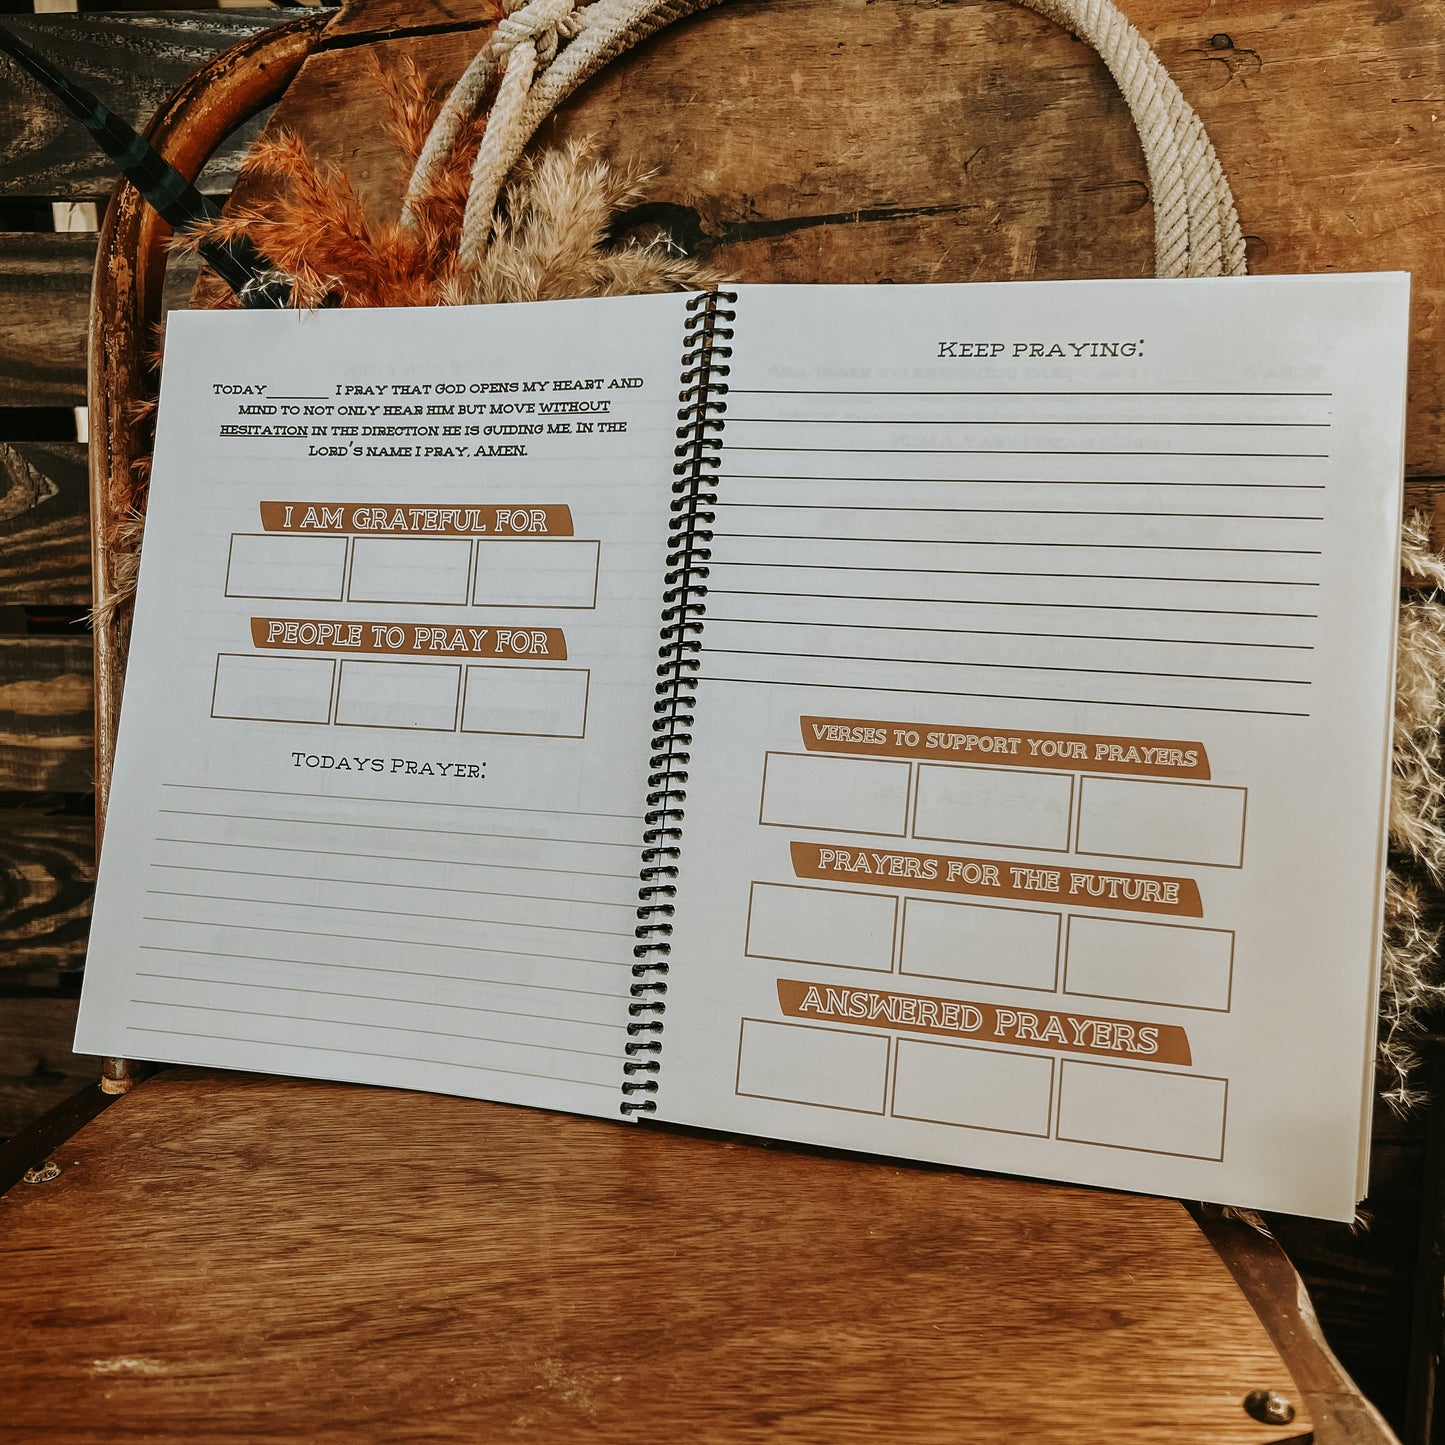 Today_______ I pray that God opens my heart and
mind to not only hear him but move without
hesitation in the direction he is guiding me. In the
Lord's name I pray, AMEN.
I AM GRATEFUL FOR
PEOPLE TO PRAY FOR
Todays Prayer:
Keep praying:
VERSES TO SUPPORT YOUR PRAYERS
PRAYERS FOR THE FUTURE
ANSWERED PRAYERS